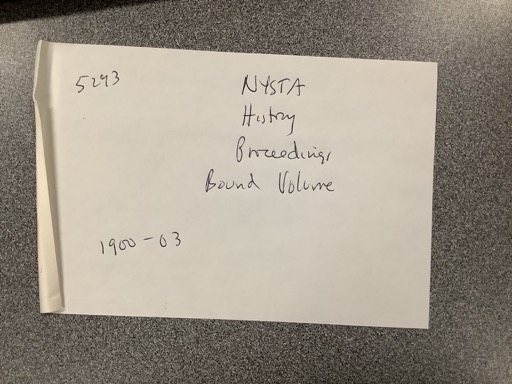 5293
NYSTA
History
Proceedings
Bound Volume
1900-03